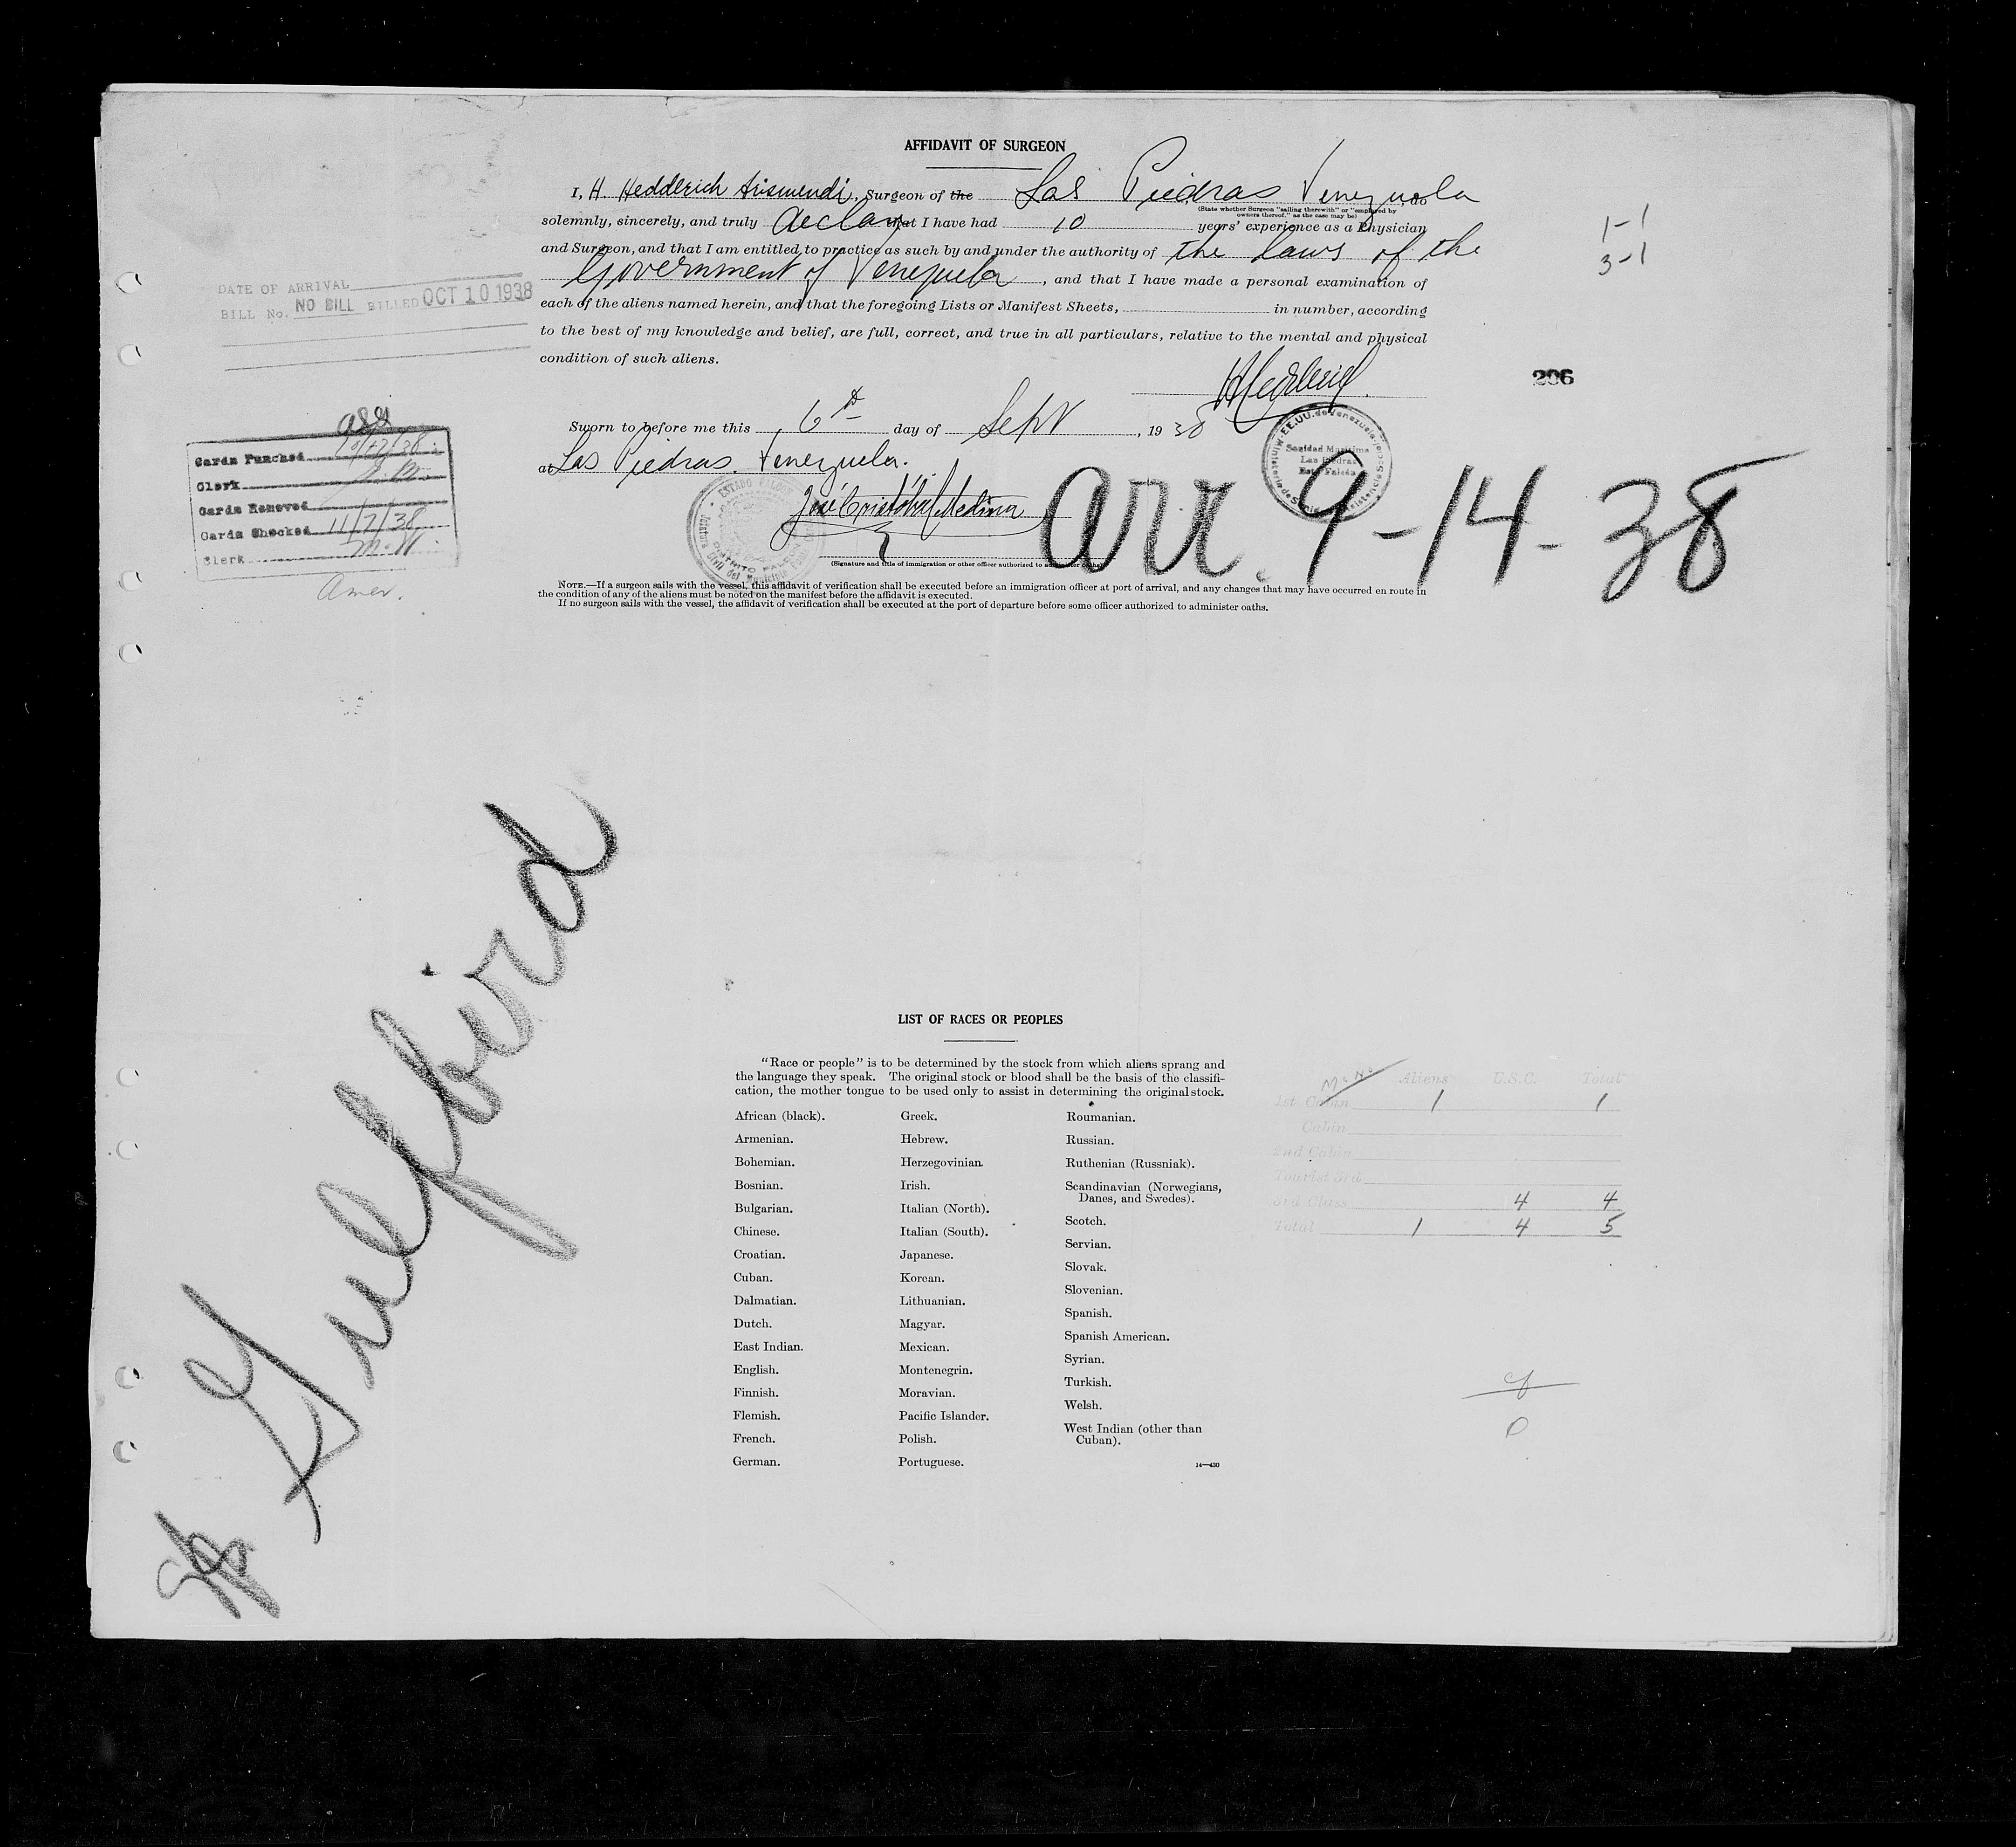 AFFIDAVIT OF SURGEON
I, H. Hedderich Arismendi, Surgeon of the Las Piedras Venezuela, do
(State whether Surgeon "sailing therewith" or "employed by
owners thereof," as the case may be)
solemnly, sincerely, and truly declare that I have had 10 years' experience as a Physician
and Surgeon, and that I am entitled to practice as such by and under the authority of the laws of the
Government of Venezuela, and that I have made a personal examination of
each of the aliens named herein, and that the foregoing Lists or Manifest Sheets, in number, according
to the best of my knowledge and belief, are full, correct, and true in all particulars, relative to the mental and physical
condition of such aliens.
1-1
3-1
DATE OF ARRIVAL
BILL No. NO BILL BILLED OCT 10 1938
206
Sworn to before me this 6th day of Sept, 1938
at Las Piedras. Venezuela.
EE.UU. de Venezuela
Sanidad Marítima
Las Piedras
Estado Falcón
José Cristóbal Medina
ESTADO FALCON
Arr. 9-14-38
(Signature and title of immigration or other officer authorized to
NOTE.—If a surgeon sails with the vessel, this affidavit of verification shall be executed before an immigration officer at port of arrival, and any changes that may have occurred en route in
the condition of any of the aliens must be noted on the manifest before the affidavit is executed.
If no surgeon sails with the vessel, the affidavit of verification shall be executed at the port of departure before some officer authorized to administer oaths.
Cards Punched
Clerk
Cards Removed
Cards Checked 11/7/38
Clerk
Amer.
Gulfbird
LIST OF RACES OR PEOPLES
"Race or people" is to be determined by the stock from which aliens sprang and
the language they speak. The original stock or blood shall be the basis of the classifi-
cation, the mother tongue to be used only to assist in determining the original stock.
African (black).
Armenian.
Bohemian.
Bosnian.
Bulgarian.
Chinese.
Croatian.
Cuban.
Dalmatian.
Dutch.
East Indian.
English.
Finnish.
Flemish.
French.
German.
Greek.
Hebrew.
Herzegovinian.
Irish.
Italian (North).
Italian (South).
Japanese.
Korean.
Lithuanian.
Magyar.
Mexican.
Montenegrin.
Moravian.
Pacific Islander.
Polish.
Portuguese.
Roumanian.
Russian.
Ruthenian (Russniak).
Scandinavian (Norwegians,
Danes, and Swedes).
Scotch.
Servian.
Slovak.
Slovenian.
Spanish.
Spanish American.
Syrian.
Turkish.
Welsh.
West Indian (other than
Cuban).
14—430
Aliens U.S.C. Total
1st Cabin 1 1
Cabin
2nd Cabin
Tourist 3rd
3rd Class 4 4
Total 1 4 5